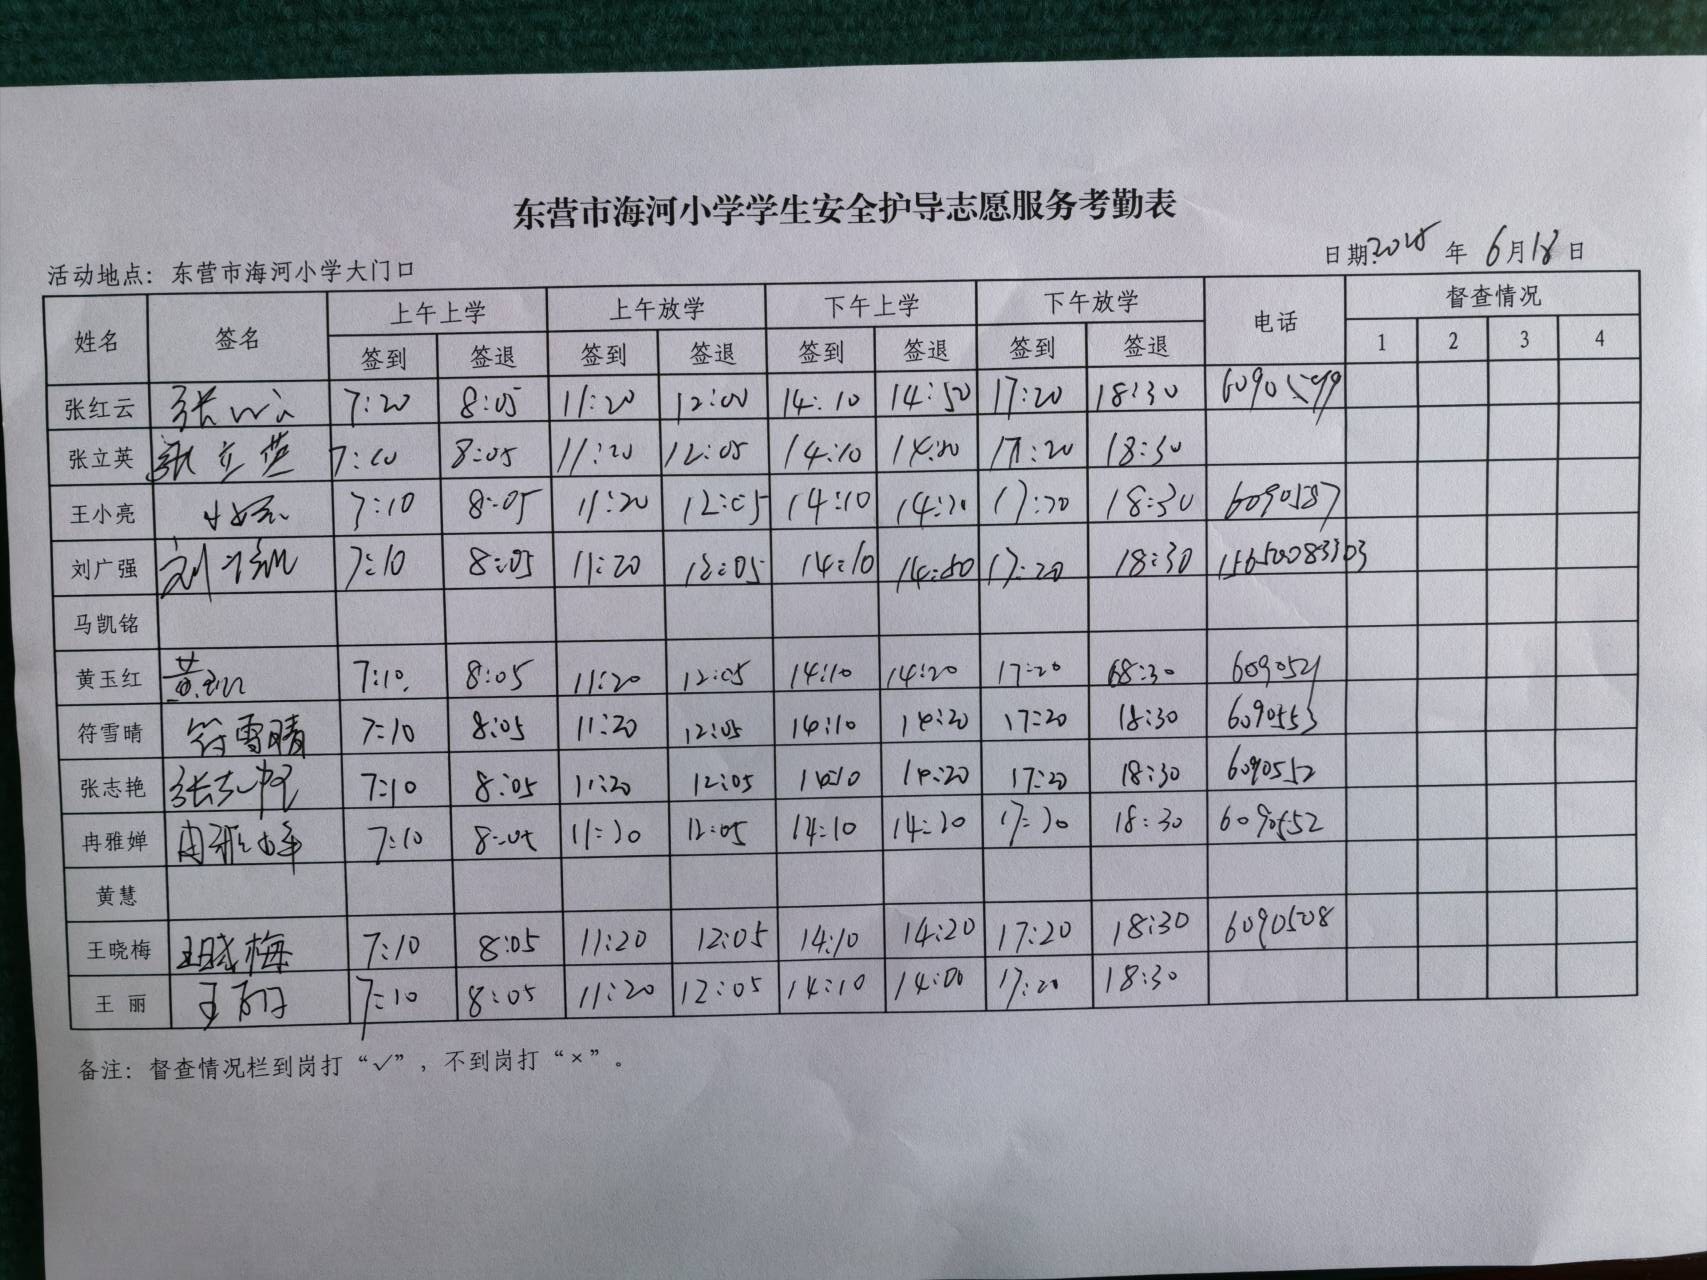 东营市海河小学学生安全护导志愿服务考勤表
活动地点：东营市海河小学大门口 日期: 2025 年 6月18日
姓名 签名 上午上学 上午放学 下午上学 下午放学 电话 督查情况
签到 签退 签到 签退 签到 签退 签到 签退 1 2 3 4
张红云 7:20 8:05 11:20 12:00 14:10 14:50 17:20 18:30 6090599
张立英 张立英 7:10 8:05 11:20 12:05 14:10 17:20 18:30
王小亮 7:10 8:05 11:20 12:05 14:10 14:20 17:20 18:30 6090587
刘广强 刘广强 7:10 8:05 11:20 12:05 14:10 17:20 18:30 15650083303
马凯铭
黄玉红 黄玉红 7:10 8:05 11:20 12:05 14:10 14:20 17:20 18:30
符雪晴 符雪晴 7:10 8:05 11:20 12:05 14:10 14:20 17:20 18:30 6090553
张志艳 张志艳 7:10 8:05 11:20 12:05 14:10 14:20 17:20 18:30 6090552
冉雅婵 冉雅婵 7:10 8:05 11:20 12:05 14:10 14:20 17:20 18:30 6090552
黄慧
王晓梅 王晓梅 7:10 8:05 11:20 12:05 14:10 14:20 17:20 18:30 6090508
王 丽 王丽 7:10 8:05 11:20 12:05 14:10 14:00 17:20 18:30
备注：督查情况栏到岗打“√”，不到岗打“×”。